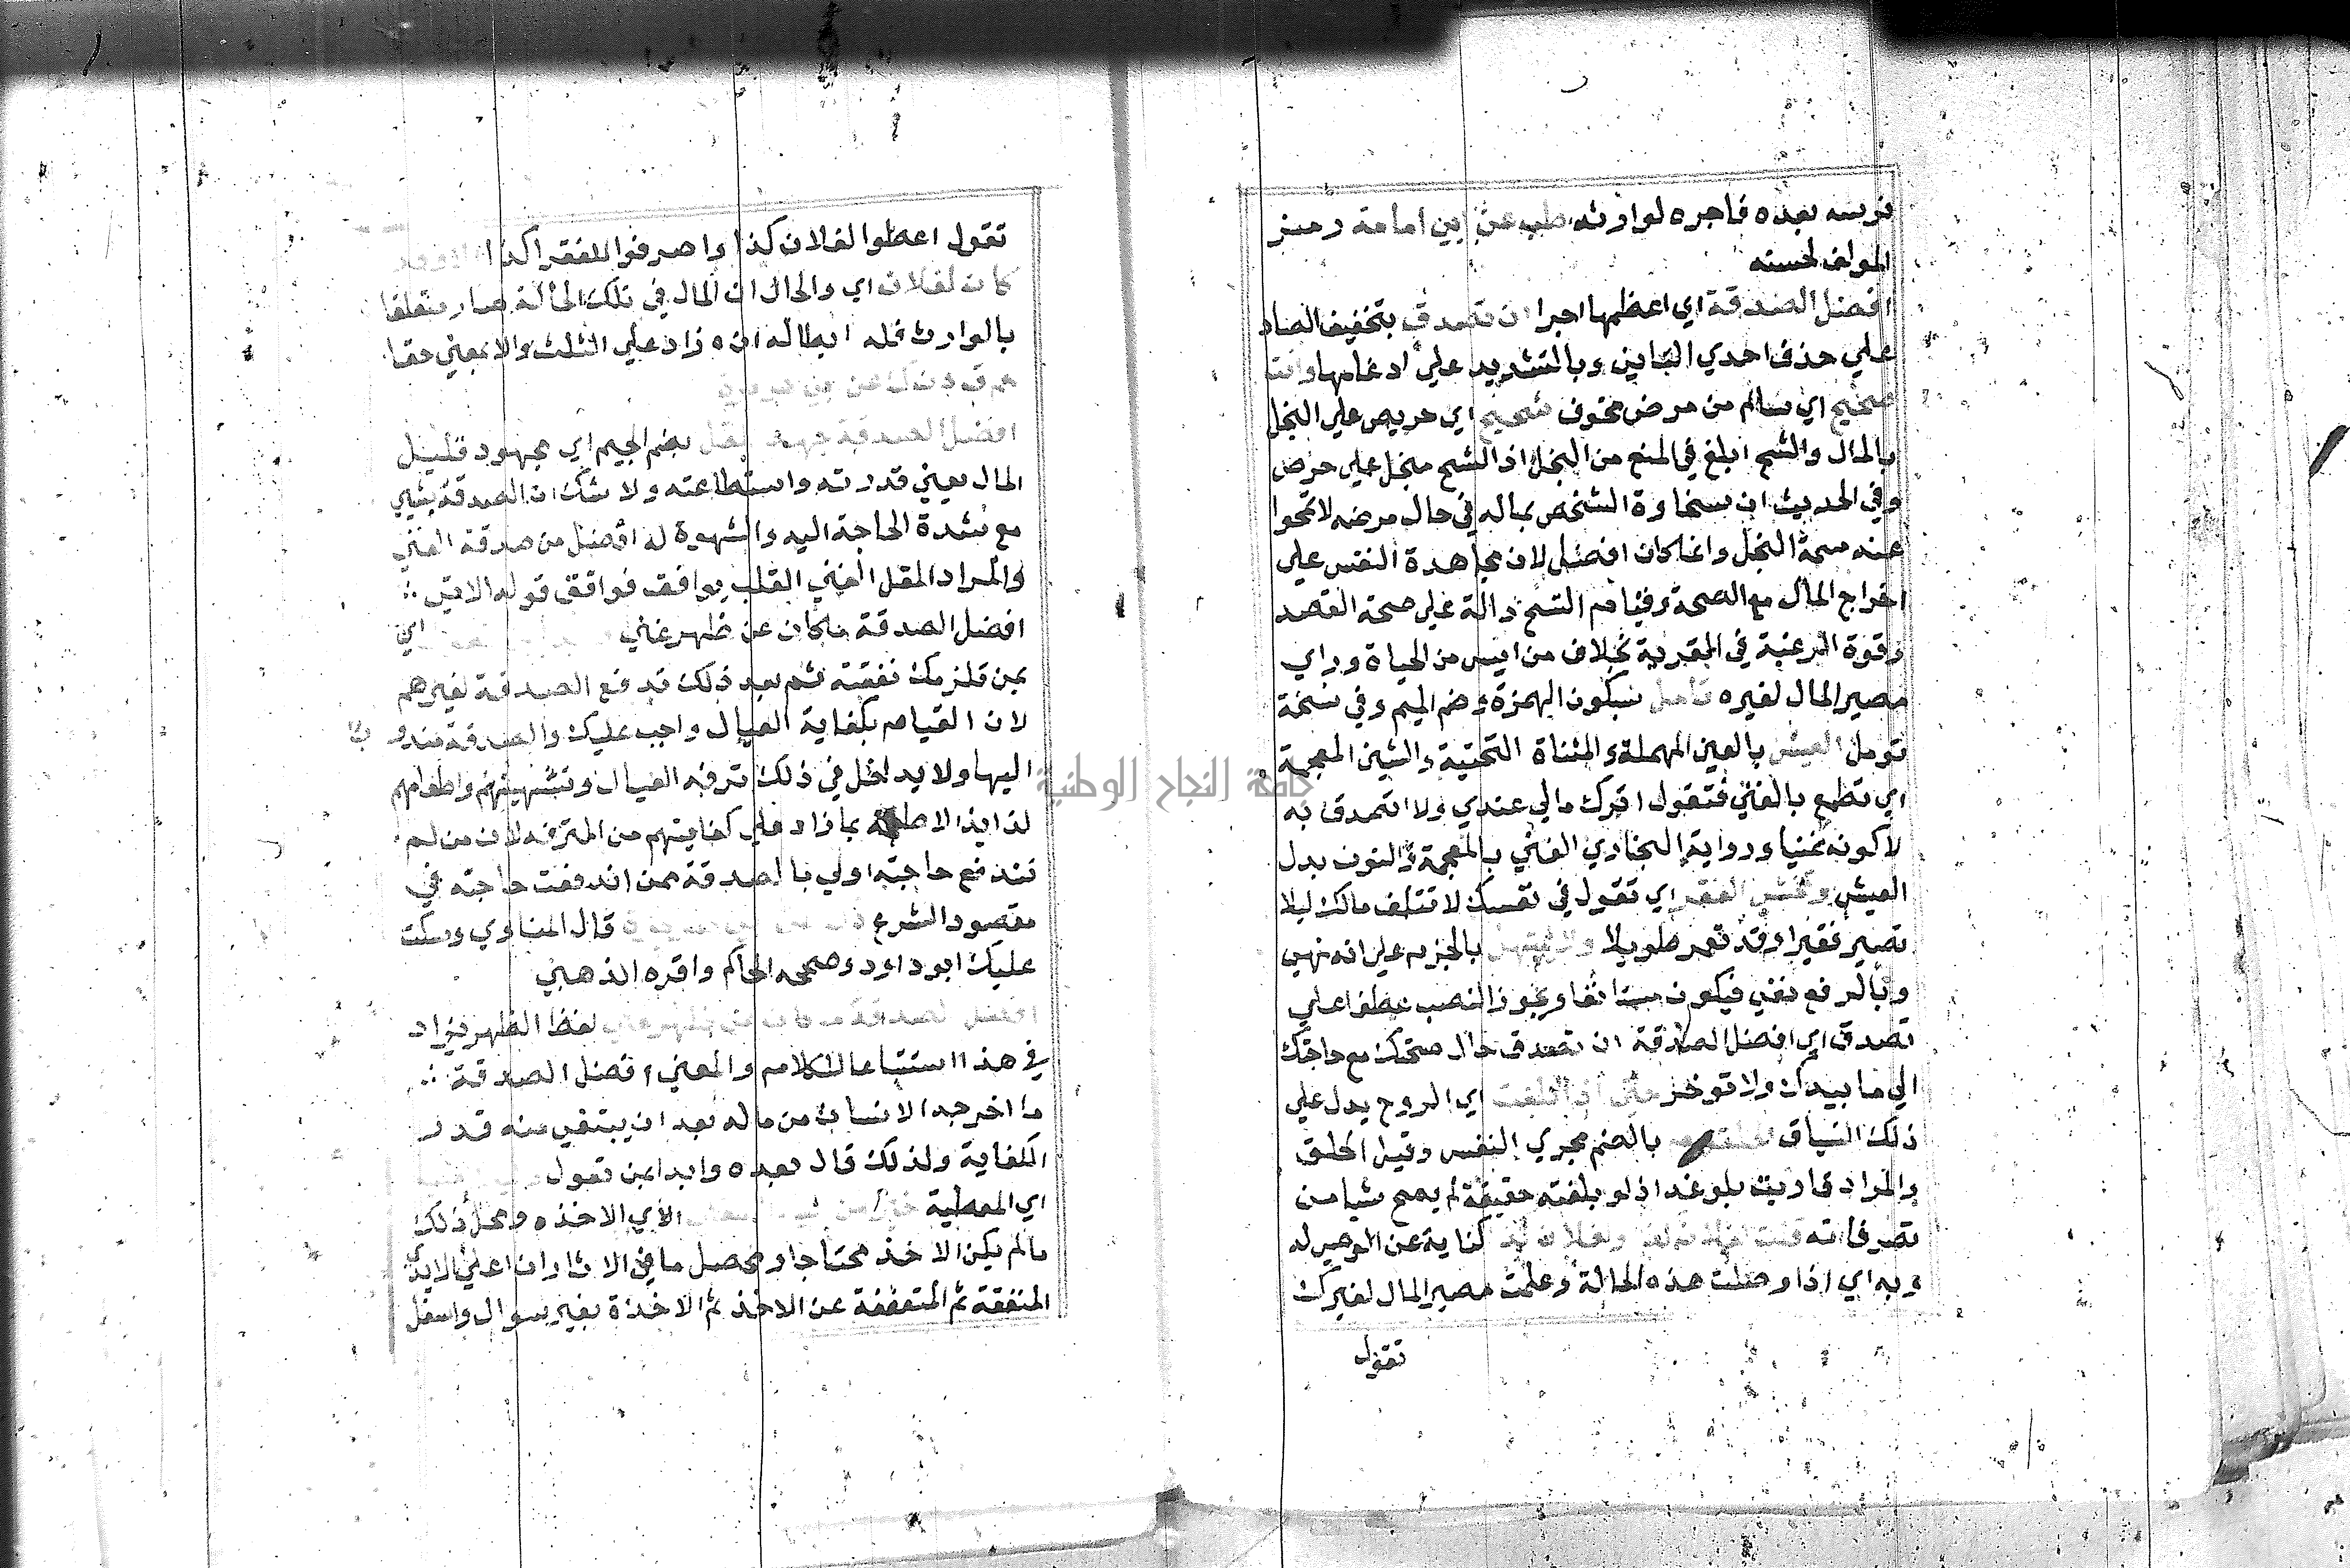 غرسه بعده فاجره لوارثه طب عن ابي امامة رمز
المولف لحسنه
افضل الصدقة اي اعظمها اجرا ان تصدق بتخفيف الصاد
علي حذف احدي التاين وبالتشديد علي ادغامها وانت
صحيح اي سالم من مرض مخوف شحيح اي حريص علي البخل
بالمال والشح ابلغ في المنع من البخل اذ الشح بخل علي حرص
وفي الحديث ان سخاوة الشخص بماله في حال مرضه لا تمحوا
عنه سمة البخل وانما كان افضل لان مجاهدة النفس علي
اخراج المال مع الصحة وقيام الشح دالة علي صحة القصد
وقوة الرغبة في القربة بخلاف من ايس من الحياة وراي
مصير المال لغيره تامل بسكون الهمزة وضم الميم وفي نسخة
تومل العيش بالعين المهملة والمثناة التحتية والشين المعجمة
اي تطمع بالغني فتقول اترك مالي عندي ولا اتصدق به
لاكون غنيا ورواية البخاري الغني بالمعجمة والنون بدل
العيش وتخشي الفقر اي تقول في نفسك لا تتلف مالك ليلا
تصير فقيرا وقد تعمر طويلا ولا تمهل بالجزم علي انه نهي
وبالرفع نفي فيكون مستانفا ويجوز النصب عطفا علي
تصدق اي افضل الصدقة ان تصدق حال صحتك مع حاجتك
الي ما بيدك ولا توخر حتي اذا بلغت اي الروح يدل علي
ذلك السياق الحلقوم بالضم مجري النفس وقيل الحلق
والمراد قاربت بلوغه اذ لو بلغته حقيقة لم يصح شيا من
تصرفاته قلت لفلان كذا ولفلان كذا كناية عن الموصي له
وبه اي اذا وصلت هذه الحالة وعلمت مصير المال لغيرك
تقول
تقول اعطوا لفلان كذا واصرفوا للفقرا كذا الا وقد
كان لفلان اي والحال ان المال في تلك الحالة صار متعلقا
بالوارث فله ابطاله ان زاد علي الثلث والا بمعني حقا
حم ق د ن عن ابي هريرة
افضل الصدقة جهد المقل بضم الجيم اي مجهود قليل
المال يعني قدرته واستطاعته ولا شك ان الصدقة بشي
مع شدة الحاجة اليه والشهوة له افضل من صدقة الغني
والمراد المقل الغني القلب يوافق قوله الاتي
افضل الصدقة ما كان عن ظهر غني اي
بمن تلزمك نفقته ثم بعد ذلك تدفع الصدقة لغيرهم
لان القيام بكفاية العيال واجب عليك والصدقة مندوب
اليها ولا يدخل في ذلك ترفه العيال وتشهيتهم واطعامهم
لذايذ الاطعمة بما زاد علي كفايتهم من الترفه لان من لم
تندفع حاجته اولي بالصدقة ممن اندفعت حاجته في
مقصود الشرع قال المناوي وسكت
عليك ابو داود وصححه الحاكم واقره الذهبي
افضل الصدقة ما كان عن ظهر غني لفظ الظهر يزاد
في هذا استتباعا للكلام والمعني افضل الصدقة
ما اخرجه الانسان من ماله بعد ان يبتقي منه قدر
الكفاية ولذلك قال بعده وابدا بمن تعول
اي المعطية خير من اليد السفلي اي الاخذه ومحل ذلك
مالم يكن الاخذ محتاجا ومحصل ما في الاثار ان اعلي الايدي
المنفقة ثم المتعففة عن الاخذ ثم الاخذة بغير سوال واسفل
جامعة النجاح الوطنية